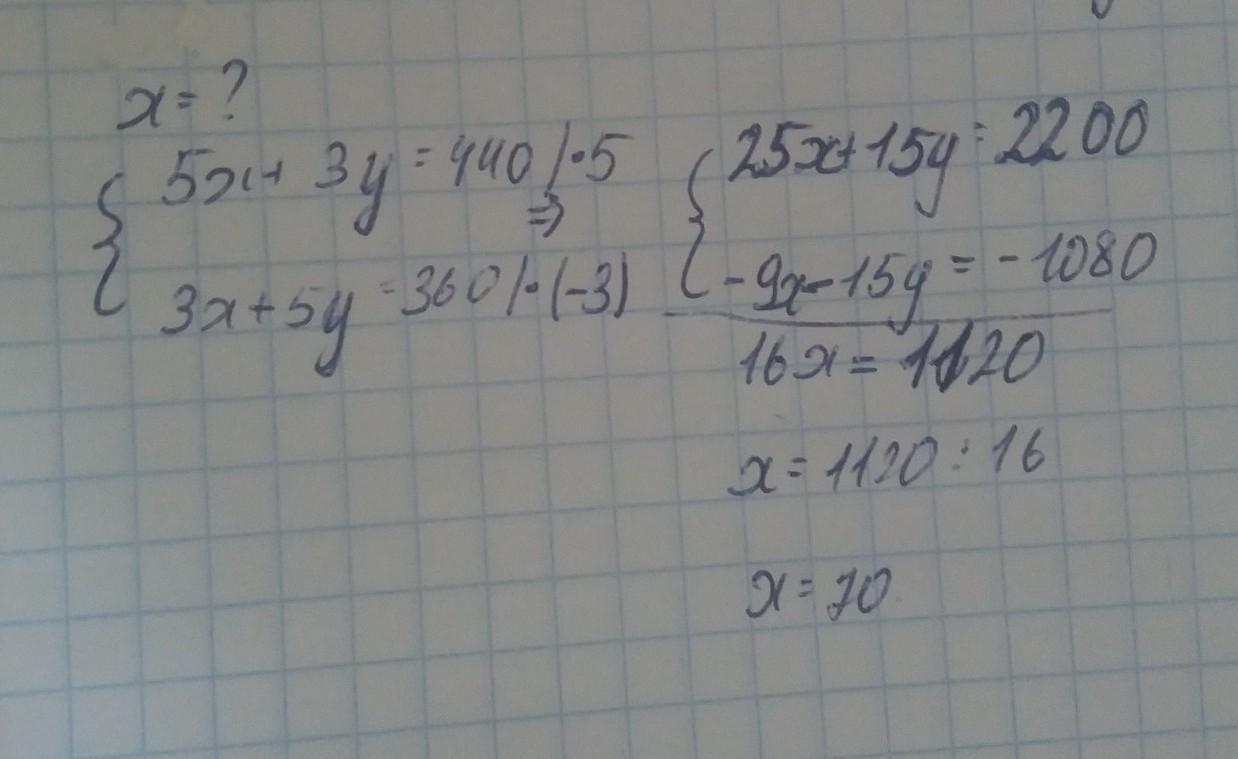 x = ?
5x + 3y = 440 /·5
⇒
3x + 5y = 360 /·(-3)
25x + 15y = 2200
-9x - 15y = -1080
16x = 1120
x = 1120 : 16
x = 70